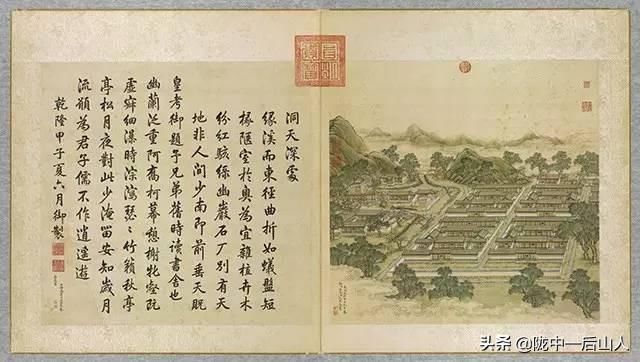 洞天深處
緣溪而東徑曲折如蟻盤短
椽陋室於奧為宜雜植卉木
紛紅駭綠幽巖石厂別有天
地非人間少南即前垂天貺
皇考御題予兄弟舊時讀書舍也
幽蘭泛重阿喬柯幕憩榭牝壑既
虛寂細瀑時淙瀉瑟〻竹籟秋亭
亭松月夜對此少淹留安知歲月
流願為君子儒不作逍遙遊
乾隆甲子夏六月御製
头条 @陇中一后山人